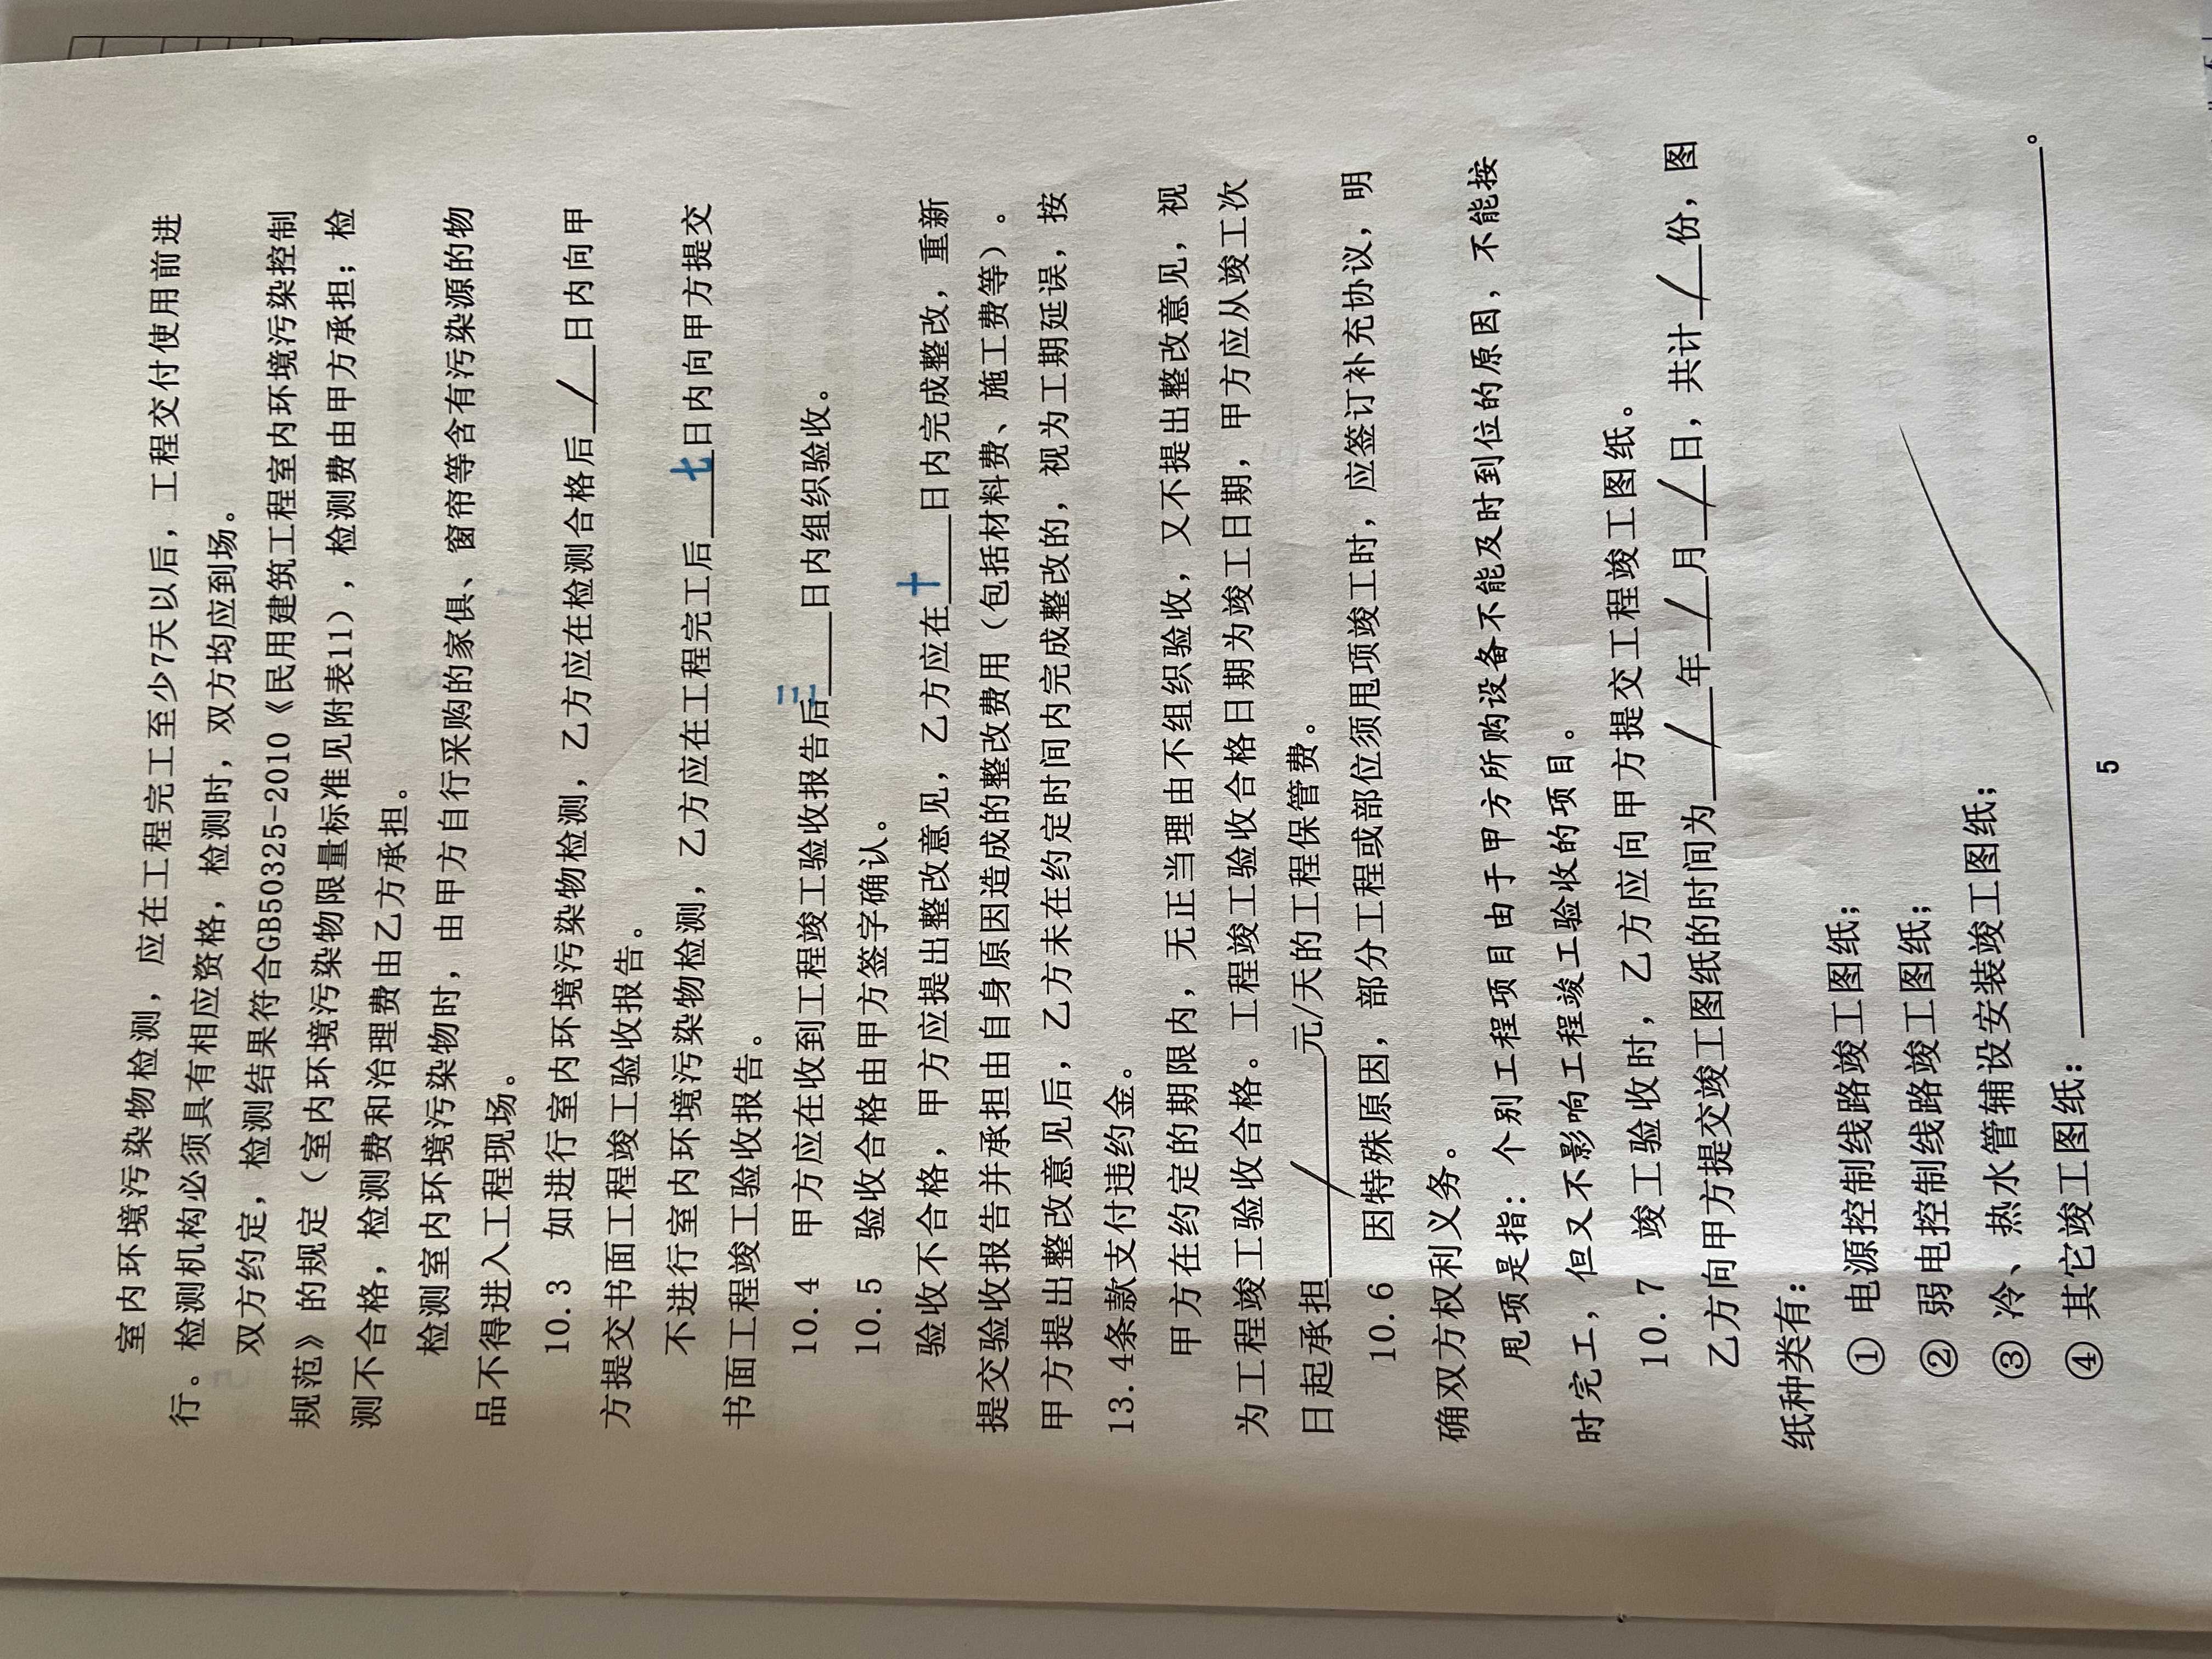 室内环境污染物检测，应在工程完工至少7天以后，工程交付使用前进
行。检测机构必须具有相应资格，检测时，双方均应到场。
双方约定，检测结果符合GB50325-2010《民用建筑工程室内环境污染控制
规范》的规定（室内环境污染物限量标准见附表11），检测费由甲方承担；检
测不合格，检测费和治理费由乙方承担。
检测室内环境污染物时，由甲方自行采购的家俱、窗帘等含有污染源的物
品不得进入工程现场。
10.3 如进行室内环境污染物检测，乙方应在检测合格后 / 日内向甲
方提交书面工程竣工验收报告。
不进行室内环境污染物检测，乙方应在工程完工后 七 日内向甲方提交
书面工程竣工验收报告。
10.4 甲方应在收到工程竣工验收报告后 三 日内组织验收。
10.5 验收合格由甲方签字确认。
验收不合格，甲方应提出整改意见，乙方应在 十 日内完成整改，重新
提交验收报告并承担由自身原因造成的整改费用（包括材料费、施工费等）。
甲方提出整改意见后，乙方未在约定时间内完成整改的，视为工期延误，按
13.4条款支付违约金。
甲方在约定的期限内，无正当理由不组织验收，又不提出整改意见，视
为工程竣工验收合格。工程竣工验收合格日期为竣工日期，甲方应从竣工次
日起承担 / 元/天的工程保管费。
10.6 因特殊原因，部分工程或部位须甩项竣工时，应签订补充协议，明
确双方权利义务。
甩项是指：个别工程项目由于甲方所购设备不能及时到位的原因，不能按
时完工，但又不影响工程竣工验收的项目。
10.7 竣工验收时，乙方应向甲方提交工程竣工图纸。
乙方向甲方提交竣工图纸的时间为 / 年 / 月 / 日，共计 / 份，图
纸种类有：
① 电源控制线路竣工图纸；
② 弱电控制线路竣工图纸；
③ 冷、热水管辅设安装竣工图纸；
④ 其它竣工图纸： 。
5